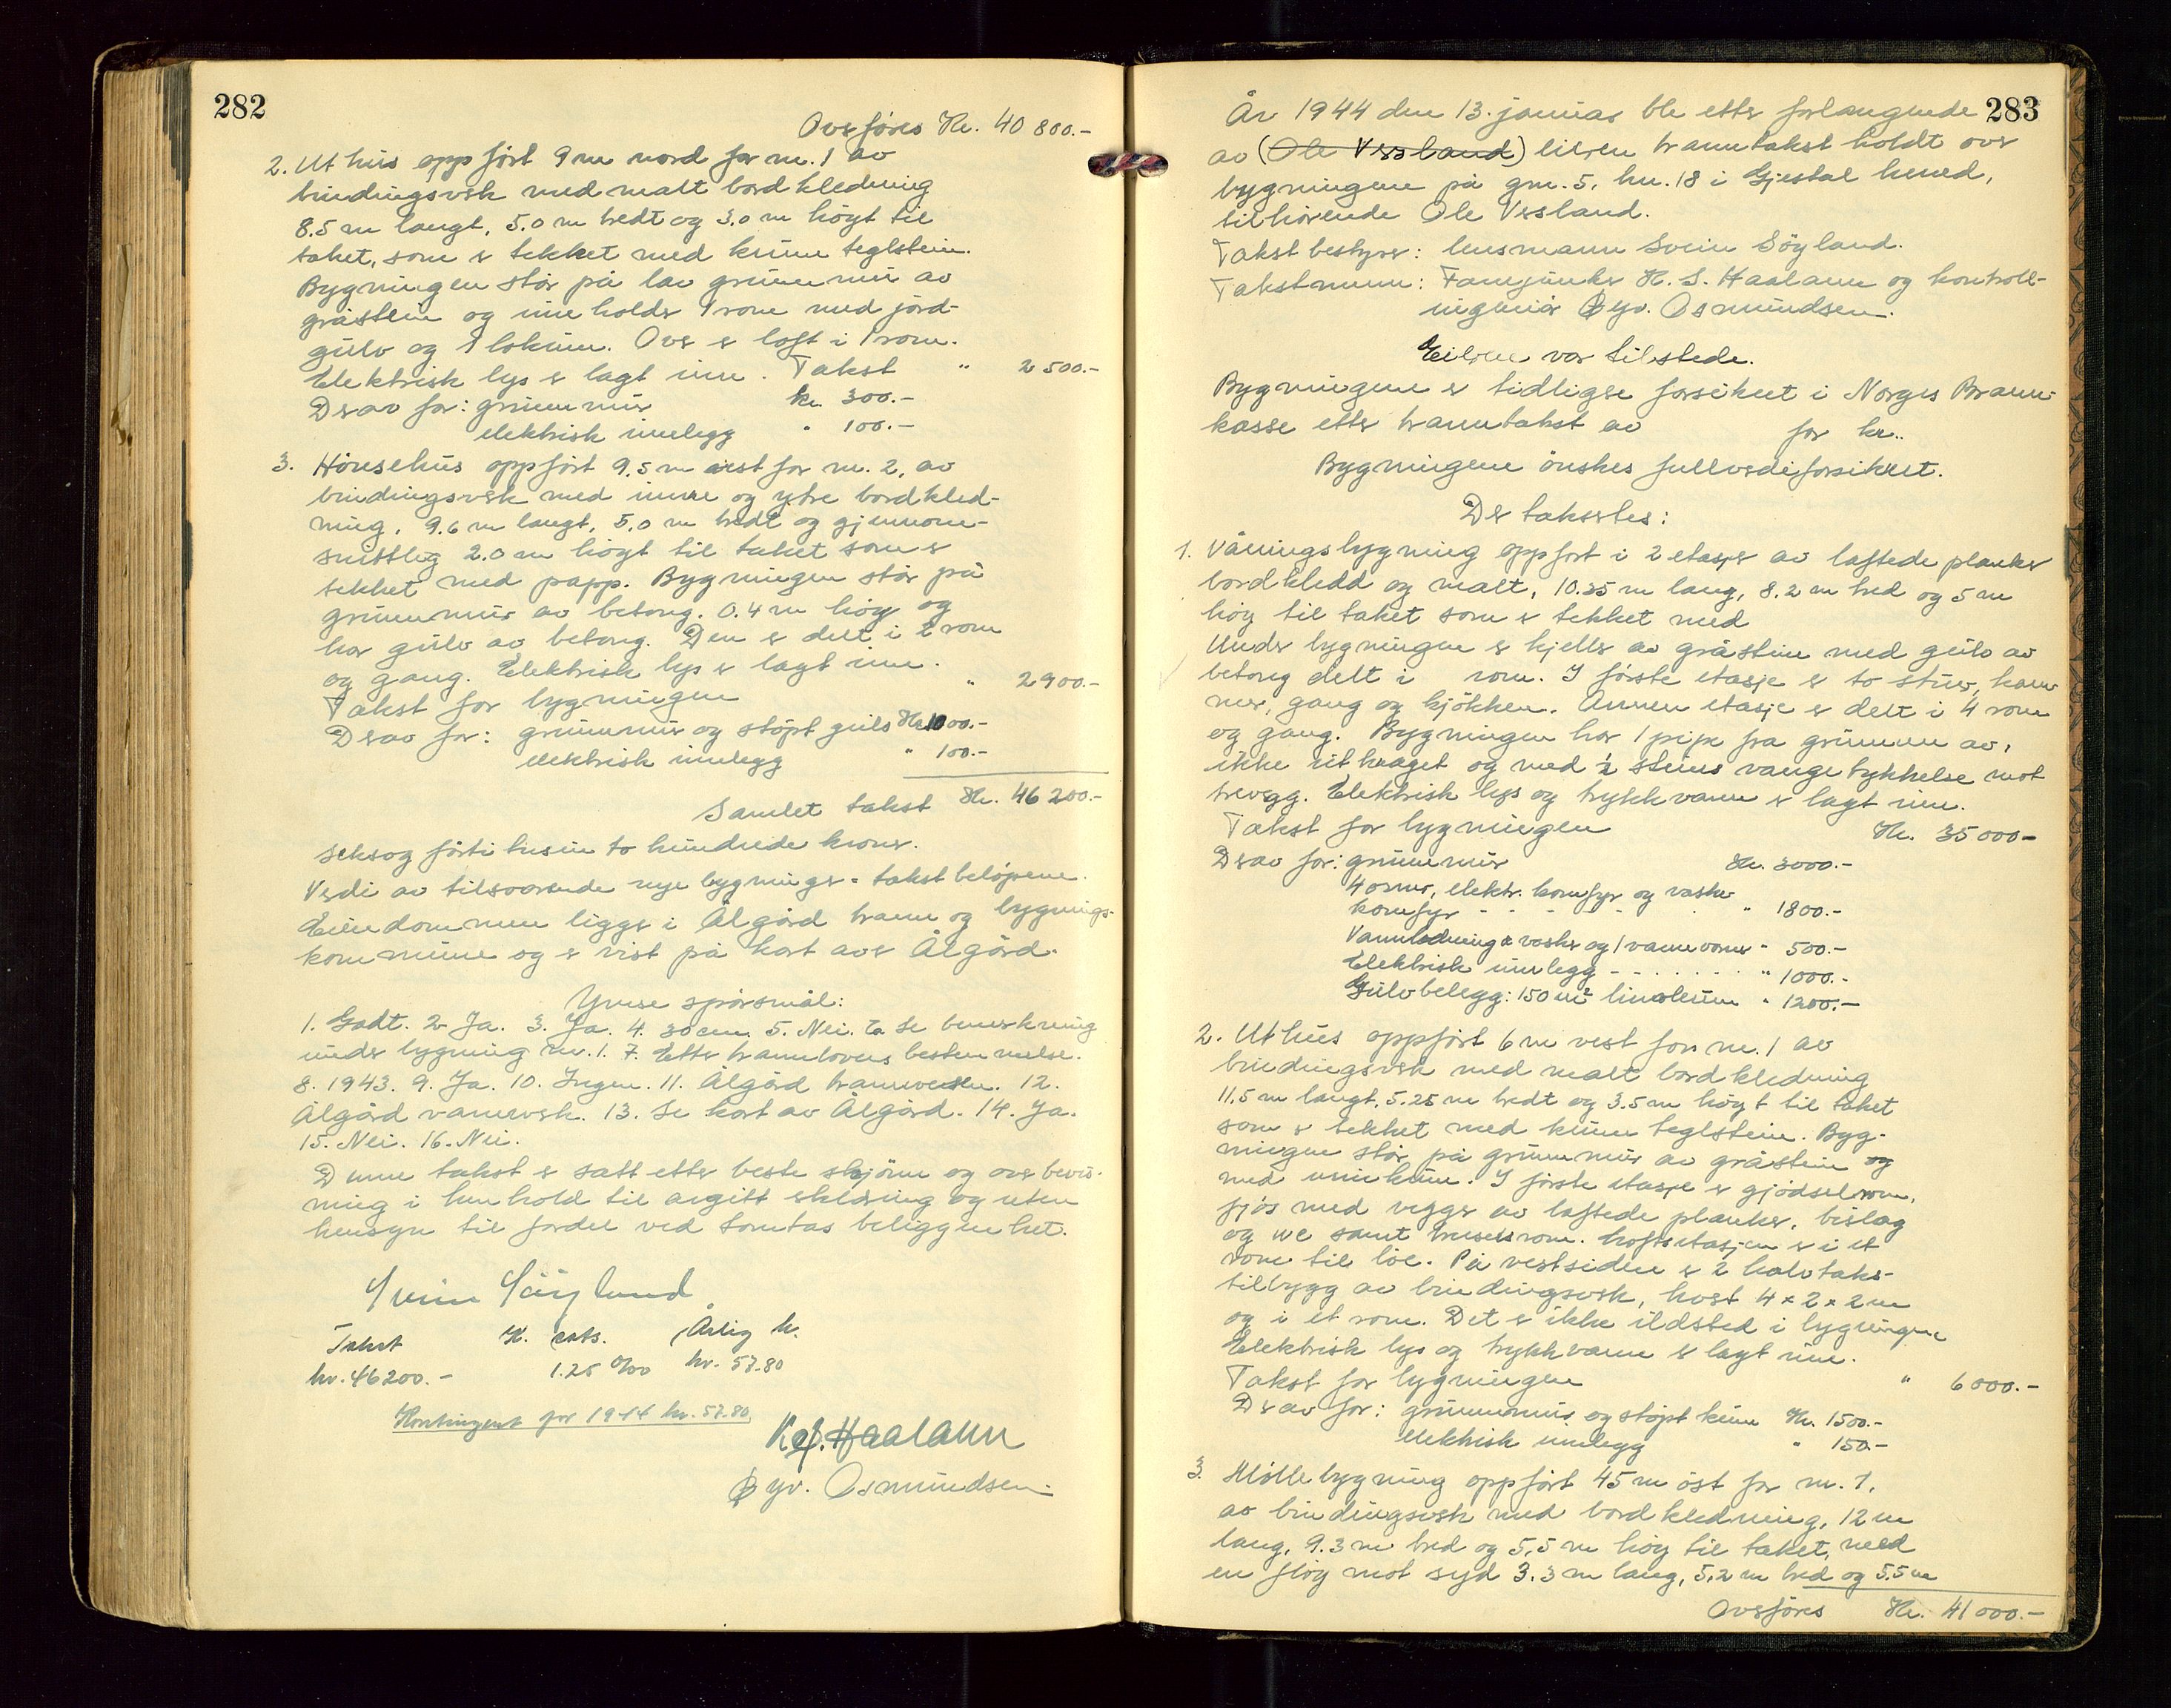 282
Overføres Kr. 40 800.-
2. Uthus oppført 9 m nord for nr. 1 av
bindingsverk med malt bordkledning
8.5 m langt, 5.0 m bredt og 3.0 m høyt til
taket, som er tekket med krum teglstein.
Bygningen står på lav grunnmur av
gråstein og inneholder 1 rom med jord-
gulv og 1 lokum. Over er loft i 1 rom.
Elektrisk lys er lagt inn. Takst " 2 500.-
Derav for: grunnmur kr. 300.-
elektrisk innlegg " 100.-
3. Hönsehus oppført 9,5 m vest for nr. 2, av
bindingsverk med innre og ytre bordkled-
ning, 9.6 m langt, 5,0 m bredt og gjennom-
snittlig 2.0 m höyt til taket som er
tekket med papp. Bygningen står på
grunnmur av betong, 0.4 m höy og
har gulv av betong. Den er delt i 2 rom
og gang. Elektrisk lys er lagt inn.
Takst for bygningen " 2900.-
Derav for: grunnmur og støpt gulv Kr. 1000.-
elektrisk innlegg " 100.-
Samlet takst Kr. 46 200.-
seksogførti tusin to hundrede kroner.
Verdi av tilsvarende nye bygninger = takstbelöpene.
Eiendommen ligger i Ålgård brann og bygnings-
kommune og er vist på kart over Ålgård.
Ymse spörsmål:
1. Godt. 2 Ja. 3. Ja. 4. 30 cm. 5. Nei. 6. Se bemerkning
under bygning nr. 1. 7. Etter brannlovens bestemmelse.
8. 1943. 9. Ja. 10. Ingen. 11. Ålgård brannvesen. 12.
Ålgård vannverk. 13. Se kart av Ålgård. 14. Ja.
15. Nei. 16. Nei.
Denne takst er satt etter beste skjönn og overbevis-
ning i henhold til avgitt erklæring og uten
hensyn til fordel ved tomtas beliggenhet.
Svein Söyland
Takst Kl. cats. Årlig k.
kr. 46200.- 1.25 0/00 kr. 57.80
Kontingent for 1944 kr. 57.80
K. S. Haalann
Øyv. Osmundsen.
283
År 1944 den 13. januar ble etter forlangende
av (Ole Vesland) eieren branntakst holdt over
bygningene på gnr. 5, bnr. 18 i Gjestal herred,
tilhørende Ole Vesland.
Takstbestyrer: lensmann Svein Söyland.
Takstmenn: Fanejunker K. S. Haalann og kontroll-
ingeniör Øyv. Osmundsen.
Eieren var tilstede.
Bygningene er tidligere forsikret i Norges Brann-
kasse etter branntakst av for kr..
Bygningene önskes fullverdiforsikret.
Der taksertes:
1. Våningsbygning oppfört i 2 etasjer av laftede planker
bordkledd og malt, 10.35 m lang, 8.2 m bred og 5 m
höy til taket som er tekket med
Under bygningen er kjeller av gråstein med gulv av
betong delt i rom. I første etasje er to stuer, kam-
mer, gang og kjökken. Annen etasje er delt i 4 rom
og gang. Bygningen har 1 pipe fra grunnen av,
ikke utkraget og med ½ steins vangetykkelse mot
trevegg. Elektrisk lys og trykkvann er lagt inn.
Takst for bygningen Kr. 35 000-
Derav for: grunnmur Kr. 3000.-
4 ovner, elektr. komfyr og vaske-
komfyr - - - - - " 1800.-
Vannledning 2 vasker og 1 vannvarmer " 500.-
Elektrisk innlegg - - . . . . . . " 1000.-
Gulvbelegg: 150 m² linoleum " 1200.-
2. Uthus oppført 6 m vest for nr. 1 av
bindingsverk med malt bordkledning
11.5 m langt, 5.25 m bredt og 3.5 m höyt til taket
som er tekket med krum teglstein. Byg-
ningen står på grunnmur av gråstein og
med urinkum. I første etasje er gjödselrom,
fjös med vegger av laftede planker, bislag
og wc samt brenselsrom. Loftsetasjen er i et
rom til löe. På vestsiden er 2 halvtaks-
tilbygg av bindingsverk, hvert 4 x 2 x 2 m
og i et rom. Det er ikke ildsted i bygningene
Elektrisk lys og trykkvann er lagt inn.
Takst for bygningen " 6 000.-
Derav for: grunnmur og støpt kum Kr. 1500.-
elektrisk innlegg " 150.-
3. Möllebygning oppfört 45 m öst for nr. 1,
av bindingsverk med bordkledning, 12 m
lang, 9.3 m bred og 5,5 m höy til taket, med
en flöy mot syd 3.3 m lang, 5,2 m bred og 5.5 m
Overføres Kr. 41 000.-